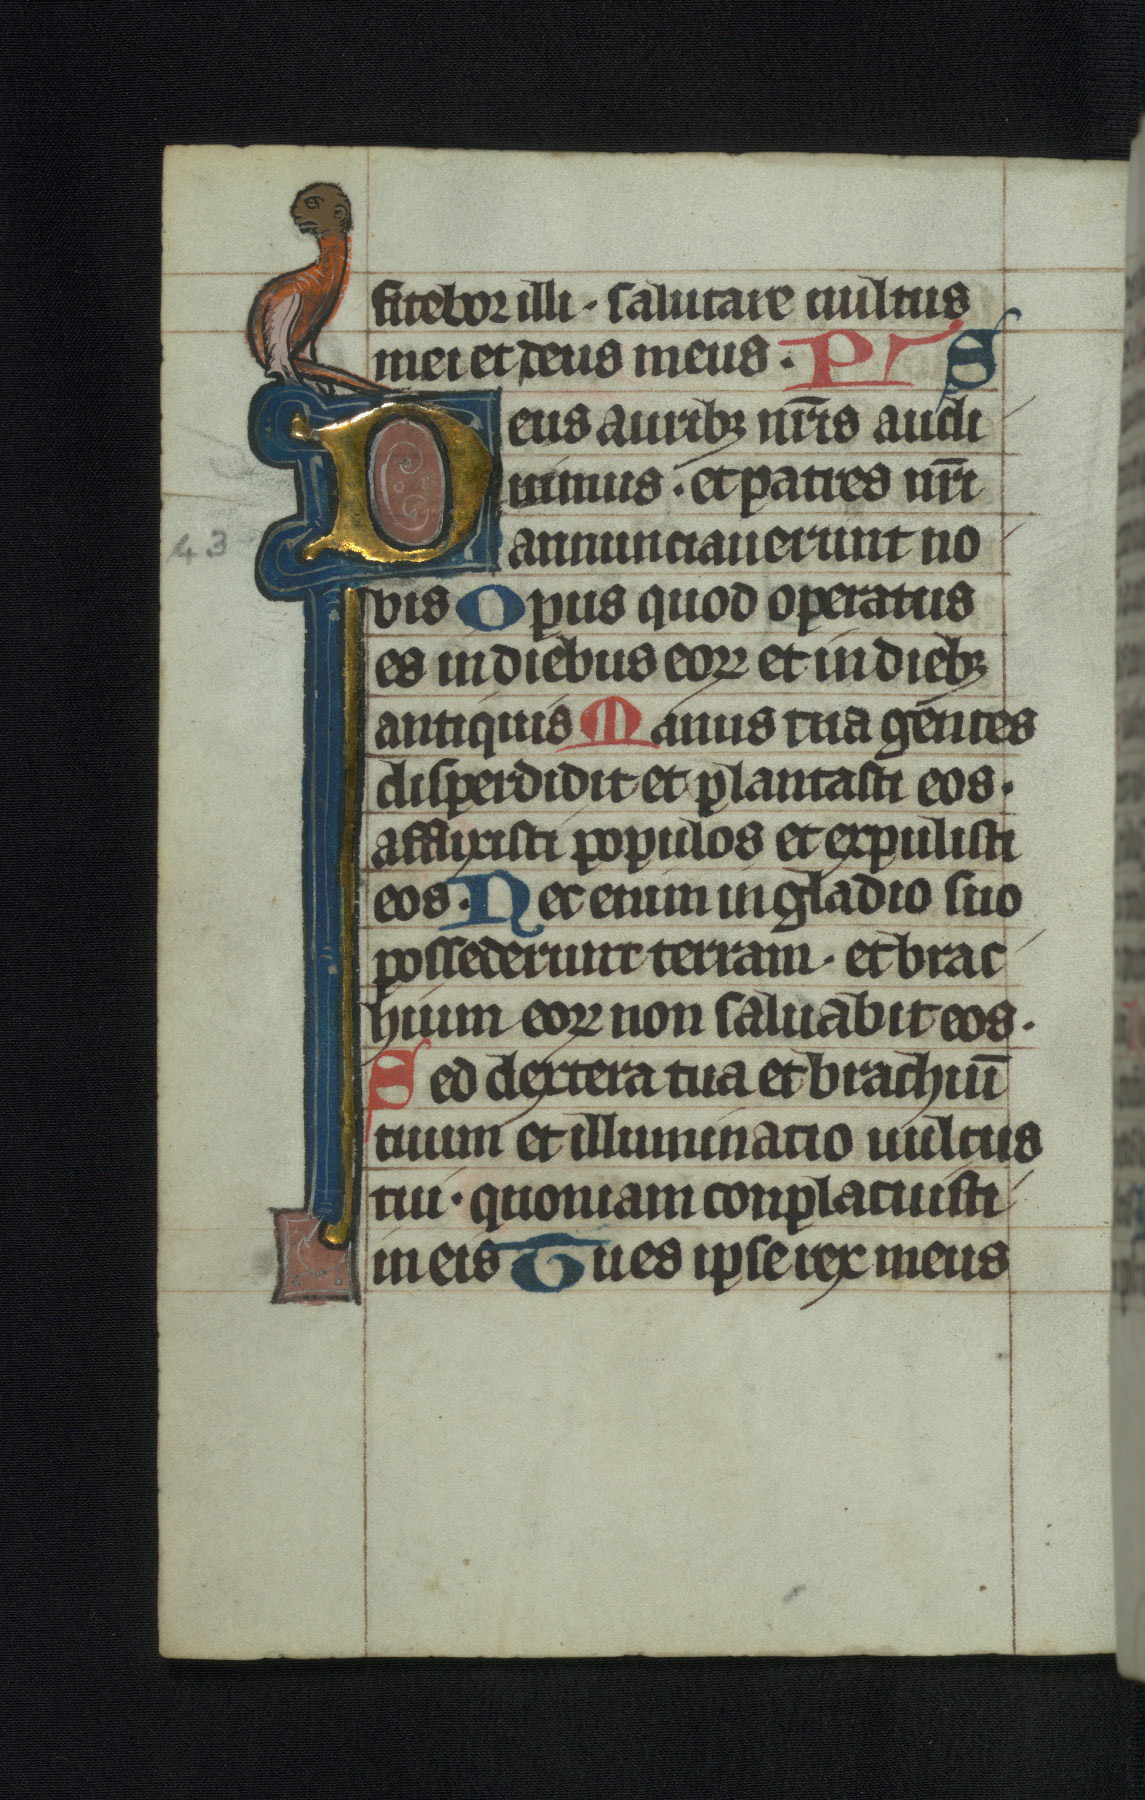 fitebor illi · salutare uultus
mei et deus meus · Pr S
Deus auribꝫ nr̄is audi
uimus · et patres nr̄i
annunciauerunt no
43
bis Opus quod operatus
es in diebus eoꝝ et in diebꝫ
antiquis Manus tua gentes
disperdidit et plantasti eos ·
afflixisti populos et expulisti
eos · Nec enim in gladio suo
possederunt terram · et brac
hium eoꝝ non saluabit eos ·
Sed dextera tua et brachiū
tuum et illuminatio uultus
tui · quoniam conplacuisti
in eis Tu es ipse rex meus